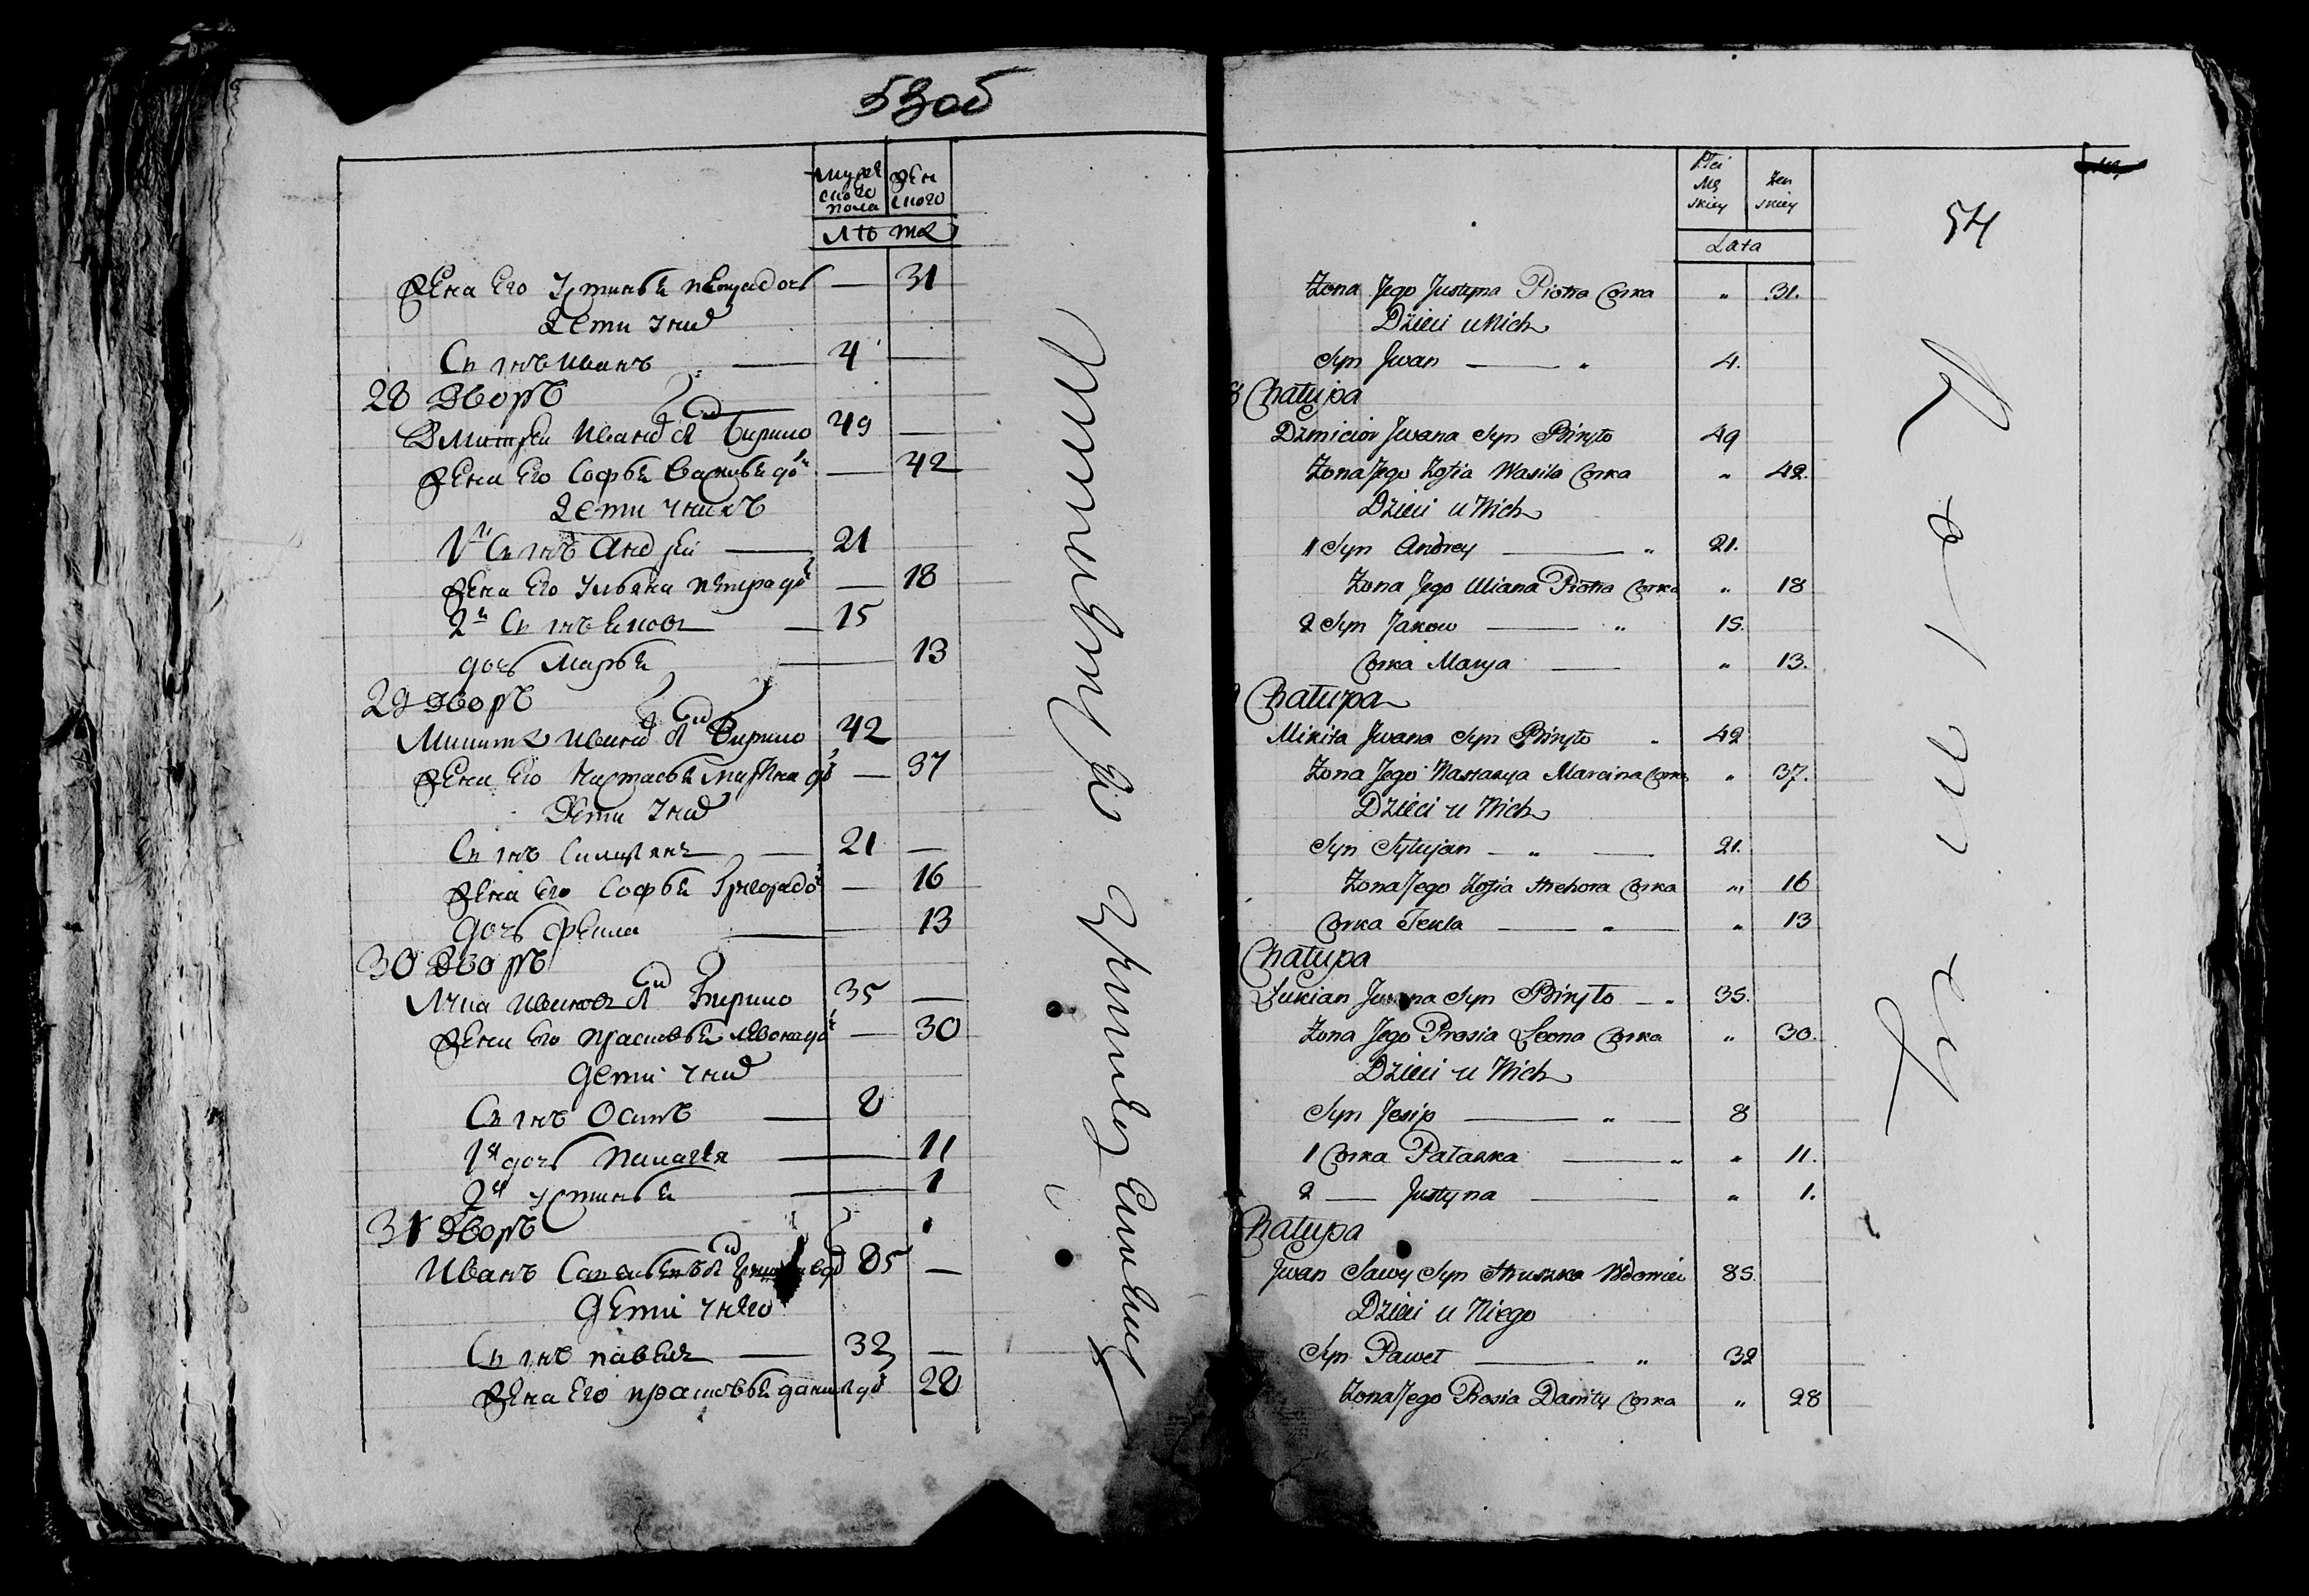 53 об
мужескаго пола
женскаго
лѣта
жена его Устинья петра дочь — 31
Дети у них
Сынъ Иванъ — 4
28 Дворъ
Дмитрей Ивановъ Сынъ Бирило 49 —
жена его Софья Василья доч — 42
Дети у нихъ
1й Сынъ Андрей — 21
жена его Ульяна петра доч — 18
2й Сынъ Яковъ — 15
дочь Марья — 13
29 Дворъ
Микита Ивановъ Сынъ Бирило 42
жена его Настасья мартина доч — 37
Дети у них
Сынъ — 21 —
жена его Софья Григора доч — 16
дочь Фекла — 13
30 Дворъ
Лука Ивановъ Сынъ Бирило 35 —
жена его прасковья Левона доч — 30
Дети у них
Сынъ Осипъ — 8
1я дочь Палагея — 11
2я Устинья — 1
31 Дворъ
Иванъ Савельевъ Сынъ 85 —
Дети у него
Сынъ павелъ — 32 —
жена его прасковья данила доч 28
Płci Męskiey
Żeńskiey
Lata
54
Żona Jego Justyna Piotra Corka " 31.
Dzieci u Nich
Syn Jwan — " 4.
8 Chałupa
Dzmicior Jwana Syn Biryło 49
Żona Jego Zofia Wasila Corka " 42.
Dzieci u Nich
1 Syn Andrey — " 21.
Żona Jego Uliana Piotra Corka " 18
2 Syn Jakow — " 15.
Corka Marya — " 13.
Chałupa
Mikita Jwana Syn Biryło " 42
Żona Jego Nastazya Marcina Corka " 37.
Dzieci u Nich
Syn Sylujan — " — 21.
Żona Jego Zofia Hrehora Corka " 16
Corka Tekla — " — " 13
Chałupa
Łukian Jwana Syn Biryło — " 35.
Żona Jego Prosia Leona Corka " 30.
Dzieci u Nich
Syn Jesip — " — 8
1 Corka Pałaska — " " 11.
2 — Justyna — " 1.
Chałupa
Jwan Sawy Syn Hruszka Wdowiec 85.
Dzieci u Niego
Syn Paweł — " 32
Żona Jego Prosia Daniły Corka " 28